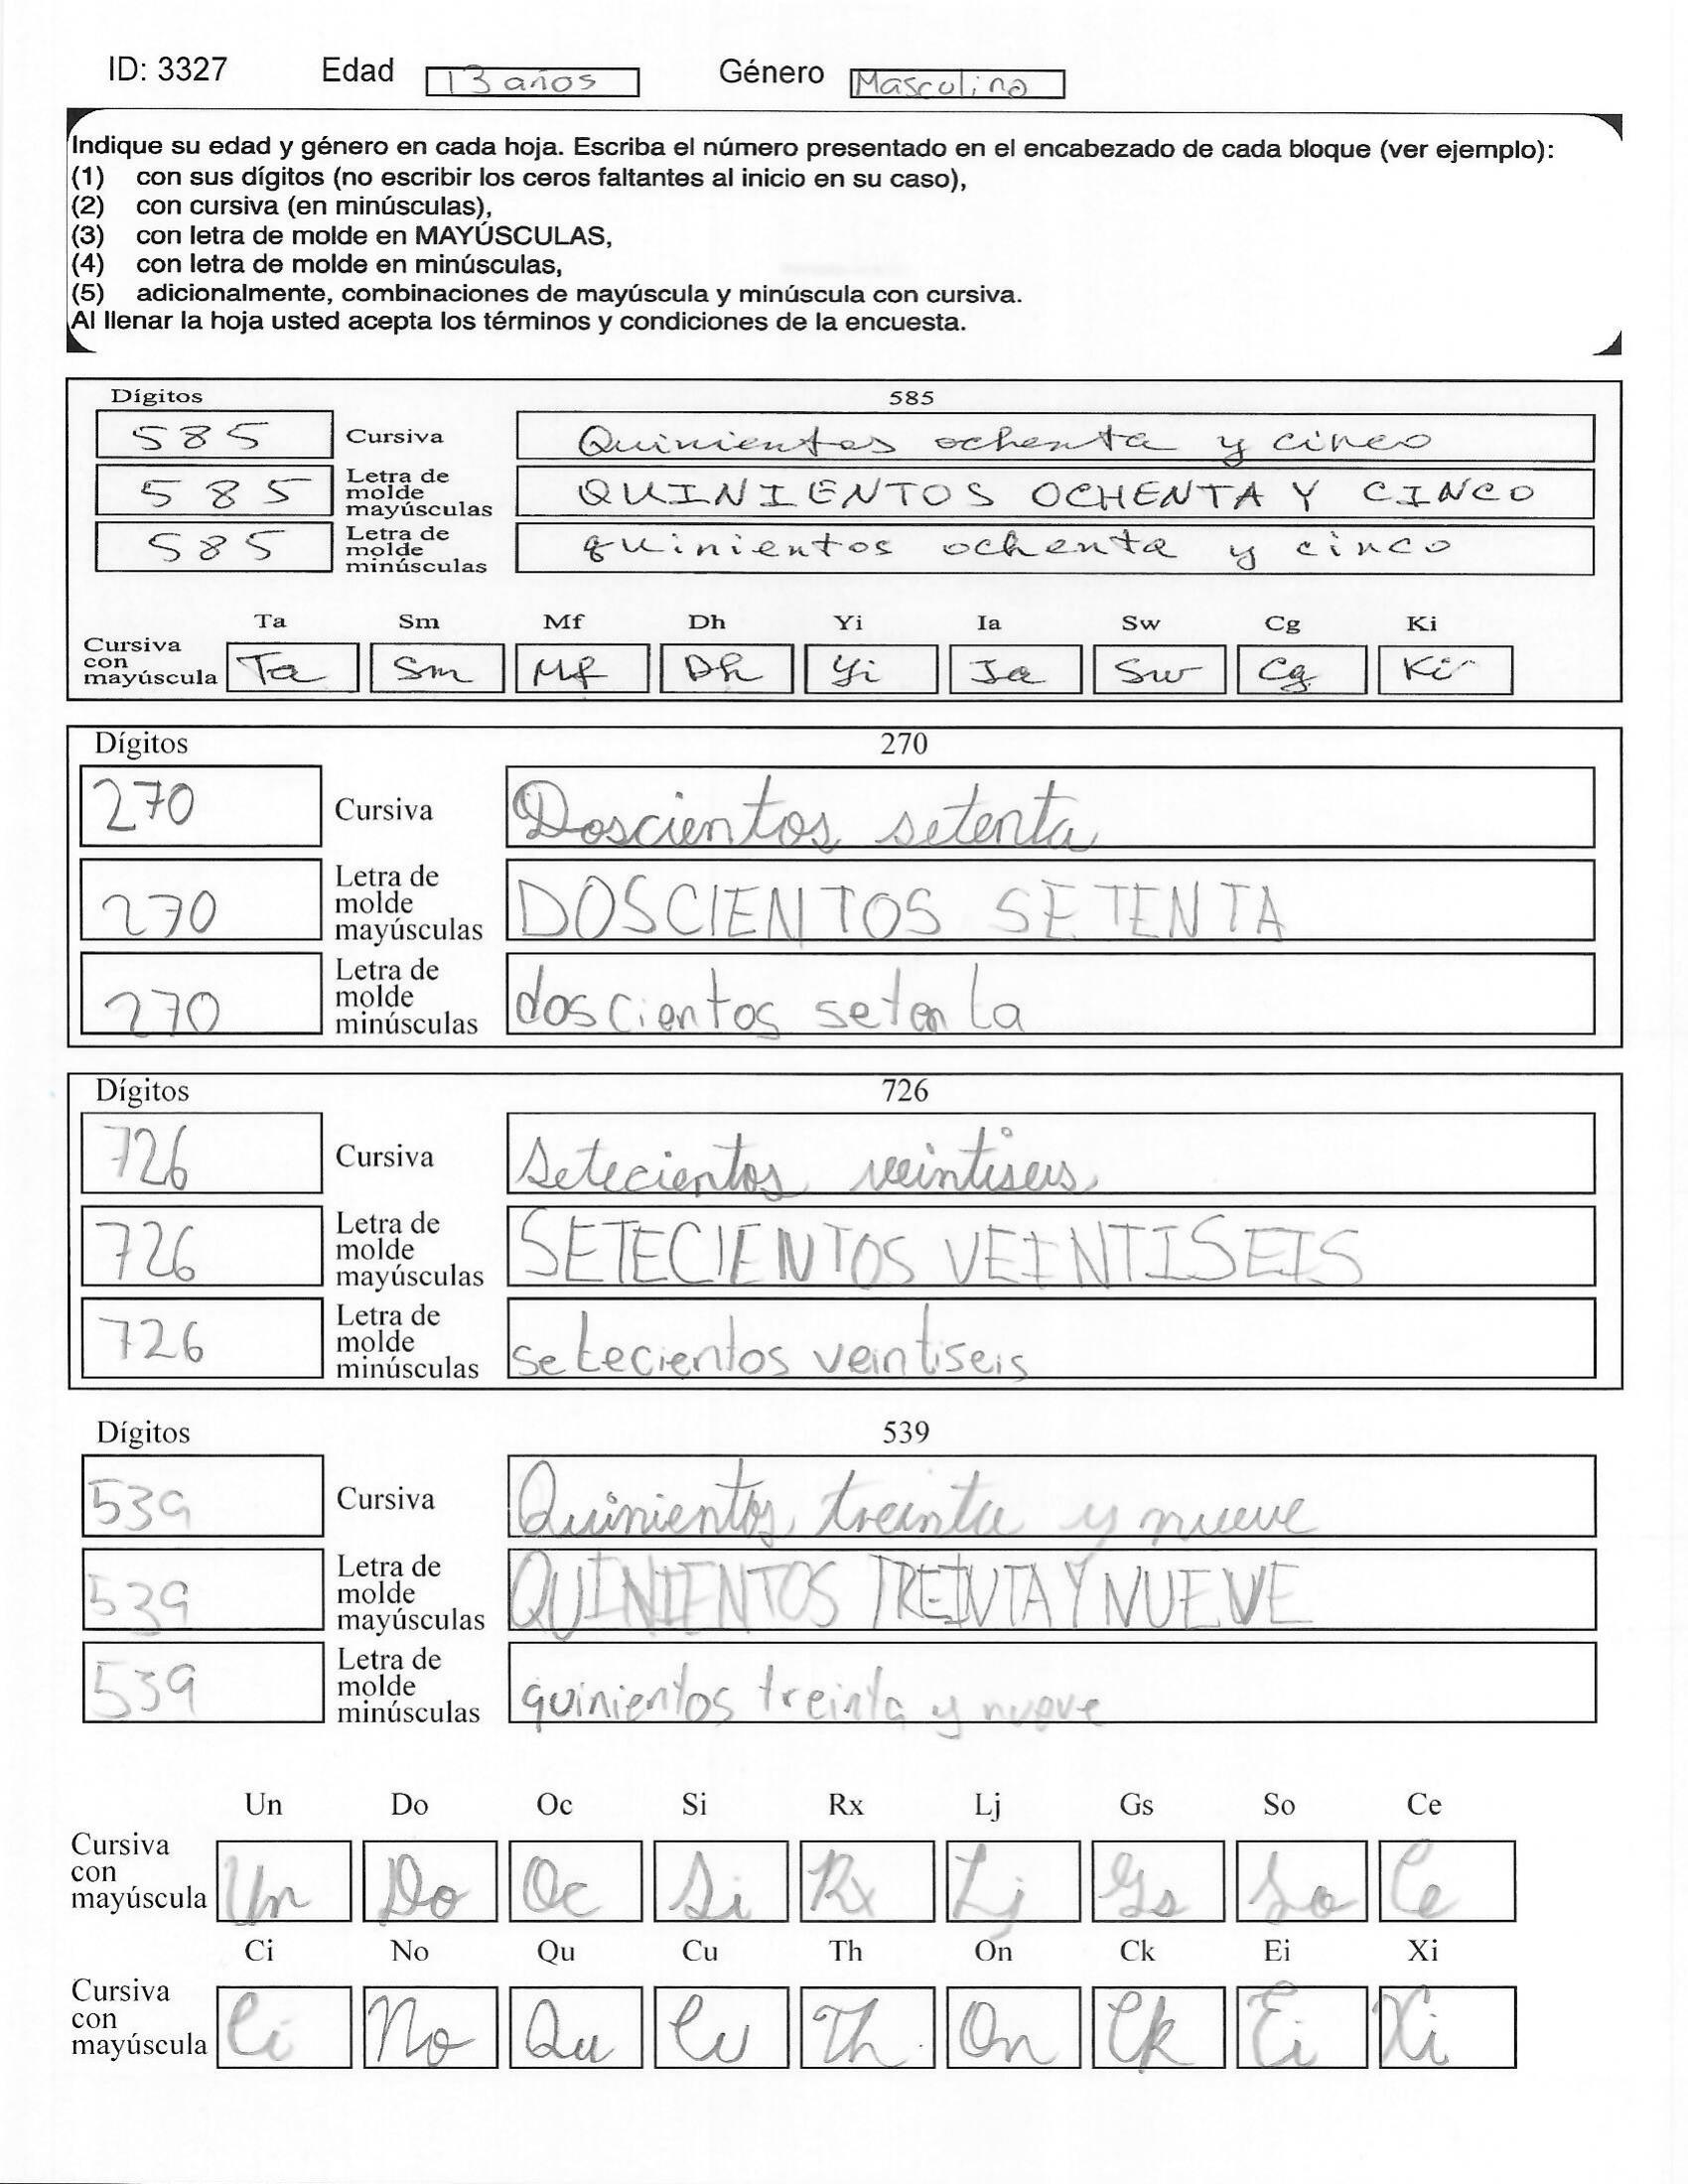 ID: 3327 Edad 13 años Género Masculino
Indique su edad y género en cada hoja. Escriba el número presentado en el encabezado de cada bloque (ver ejemplo):
(1) con sus dígitos (no escribir los ceros faltantes al inicio en su caso),
(2) con cursiva (en minúsculas),
(3) con letra de molde en MAYÚSCULAS,
(4) con letra de molde en minúsculas,
(5) adicionalmente, combinaciones de mayúscula y minúscula con cursiva.
Al llenar la hoja usted acepta los términos y condiciones de la encuesta.
Dígitos 585
585 Cursiva Quinientos ochenta y cinco
585 Letra de molde mayúsculas QUINIENTOS OCHENTA Y CINCO
585 Letra de molde minúsculas quinientos ochenta y cinco
Ta Sm Mf Dh Yi Ia Sw Cg Ki
Cursiva con mayúscula Ta Sm Mf Dh Yi Ia Sw Cg Ki
Dígitos 270
270 Cursiva Doscientos setenta
270 Letra de molde mayúsculas DOSCIENTOS SETENTA
270 Letra de molde minúsculas doscientos setenta
Dígitos 726
726 Cursiva Setecientos veintiseis
726 Letra de molde mayúsculas SETECIENTOS VEINTISEIS
726 Letra de molde minúsculas setecientos veintiseis
Dígitos 539
539 Cursiva Quinientos treinta y nueve
539 Letra de molde mayúsculas QUINIENTOS TREINTA Y NUEVE
539 Letra de molde minúsculas quinientos treinta y nueve
Un Do Oc Si Rx Lj Gs So Ce
Cursiva con mayúscula Un Do Oc Si Rx Lj Gs So Ce
Ci No Qu Cu Th On Ck Ei Xi
Cursiva con mayúscula Ci No Qu Cu Th On Ck Ei Xi